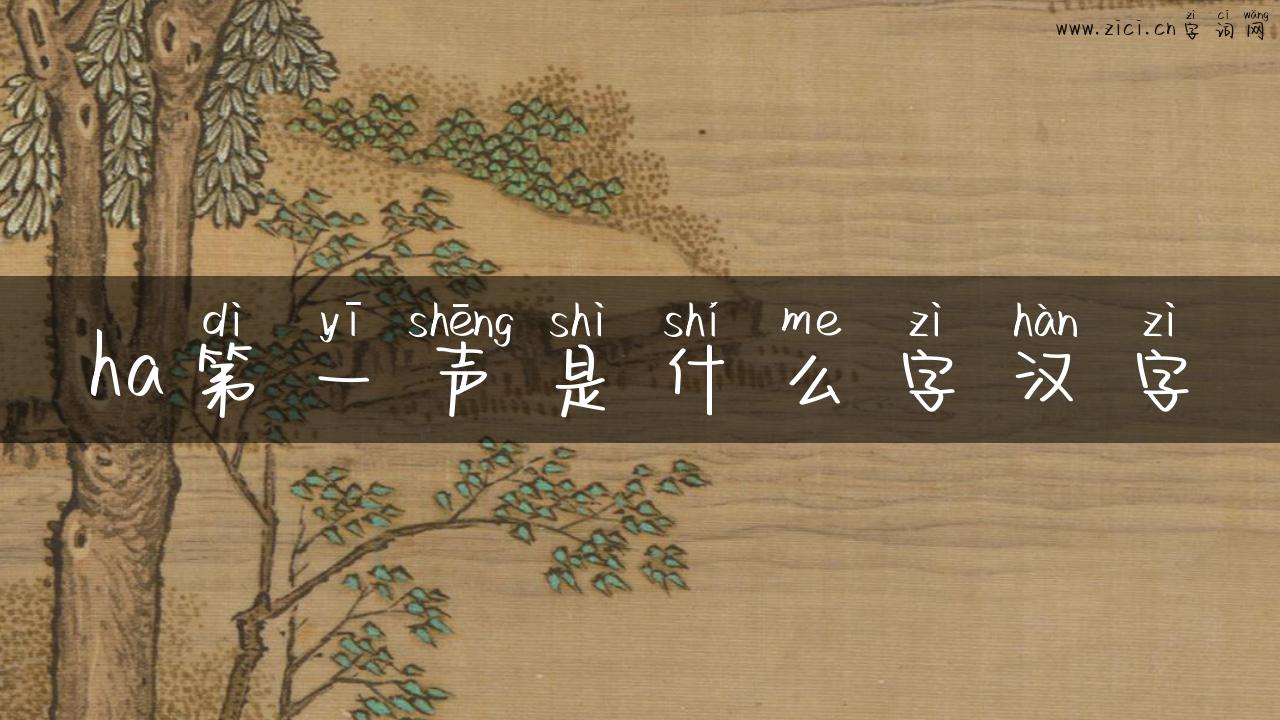 zì cí wǎng
www.zici.cn 字词网
dì yī shēng shì shí me zì hàn zì
ha 第一声是什么字汉字